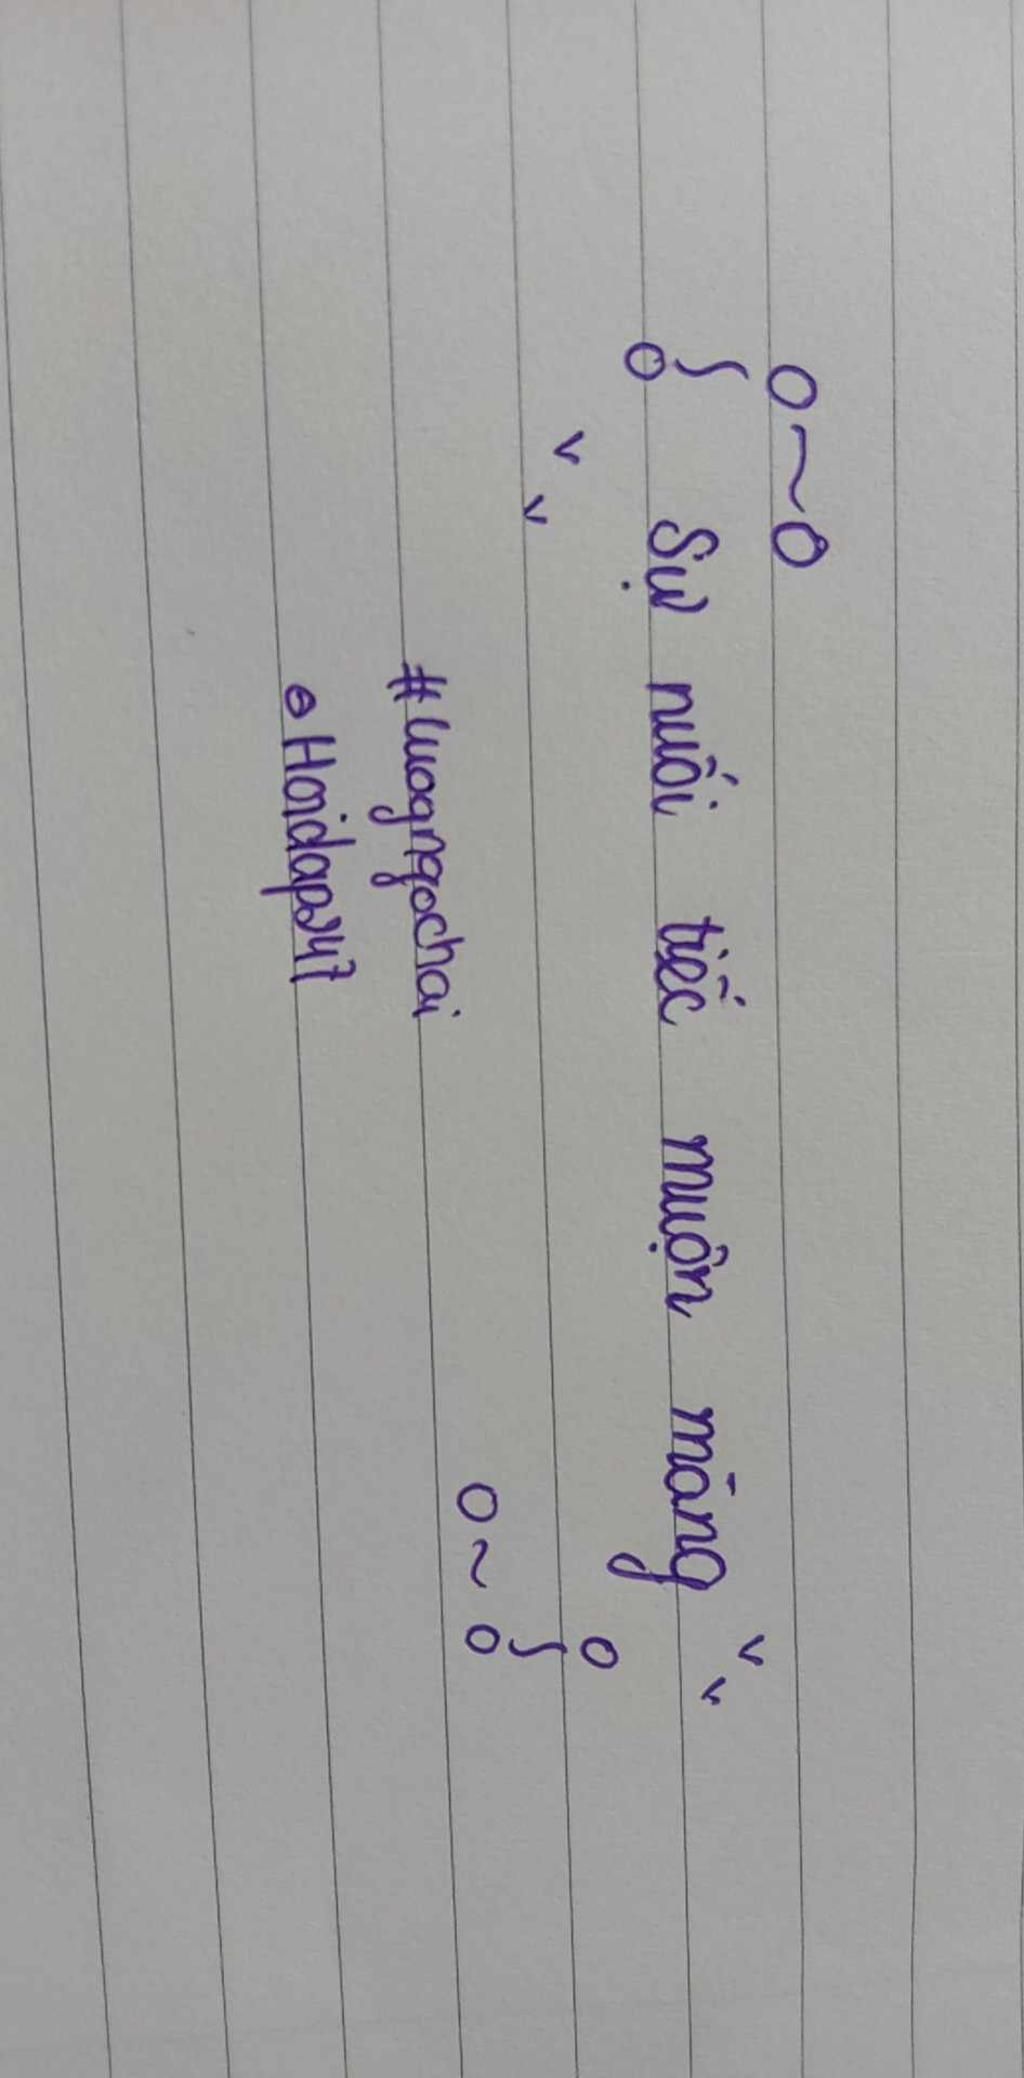 Sự nuối tiếc muộn màng
#luognqochai
Hoidap247